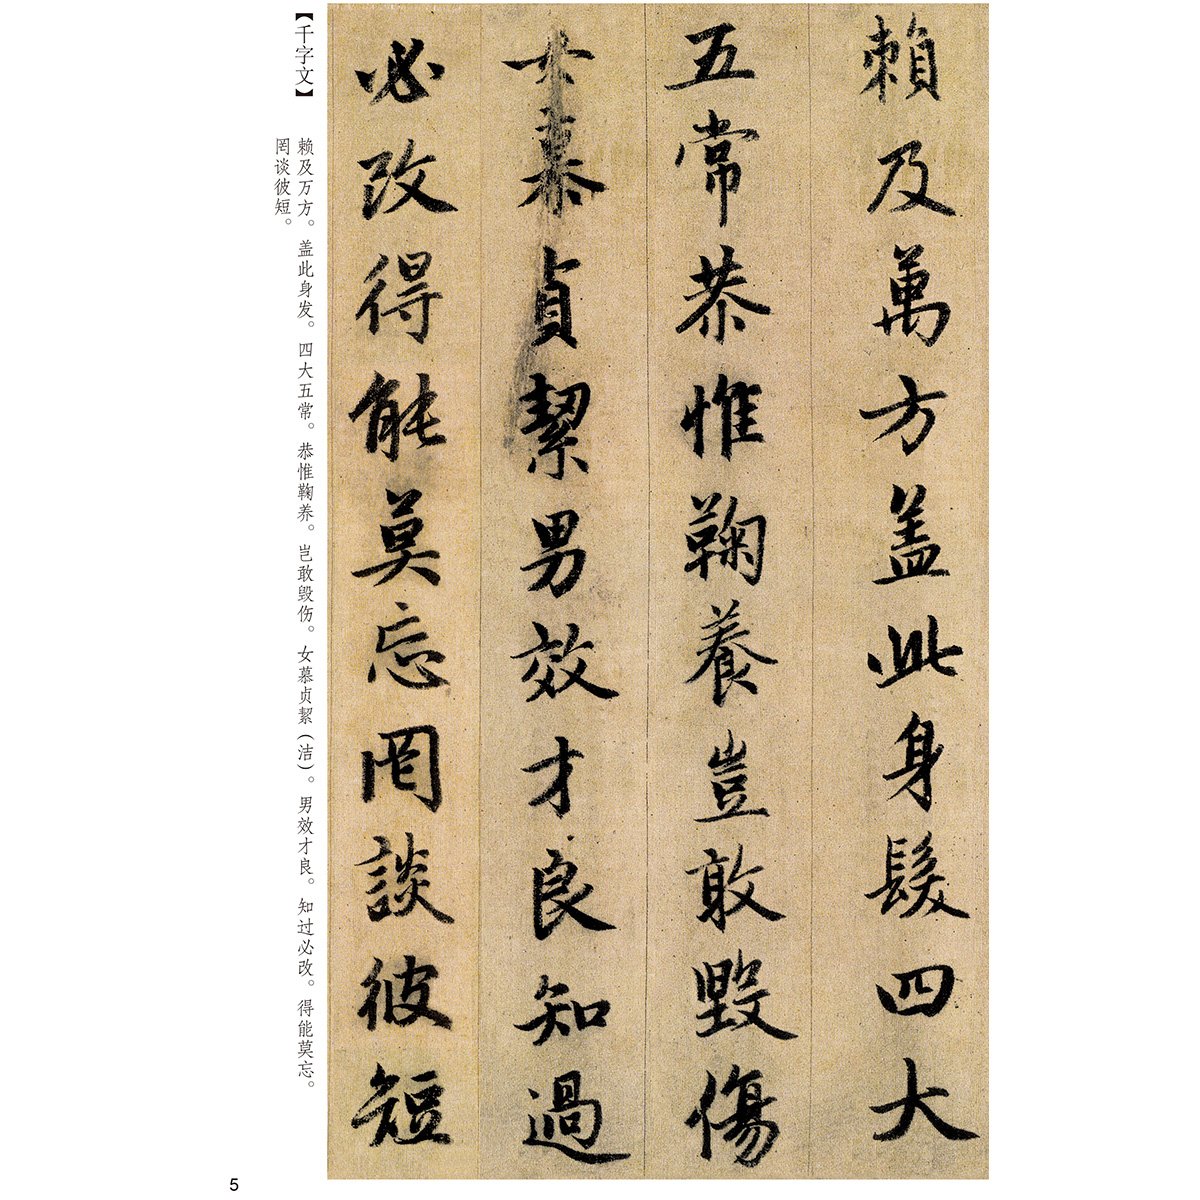 賴及萬方盖此身髮四大
五常恭惟鞠養豈敢毀傷
女慕貞絜男效才良知過
必改得能莫忘罔談彼短
【千字文】
赖及万方。盖此身发。四大五常。恭惟鞠养。岂敢毁伤。女慕贞絜(洁)。男效才良。知过必改。得能莫忘。
罔谈彼短。
5